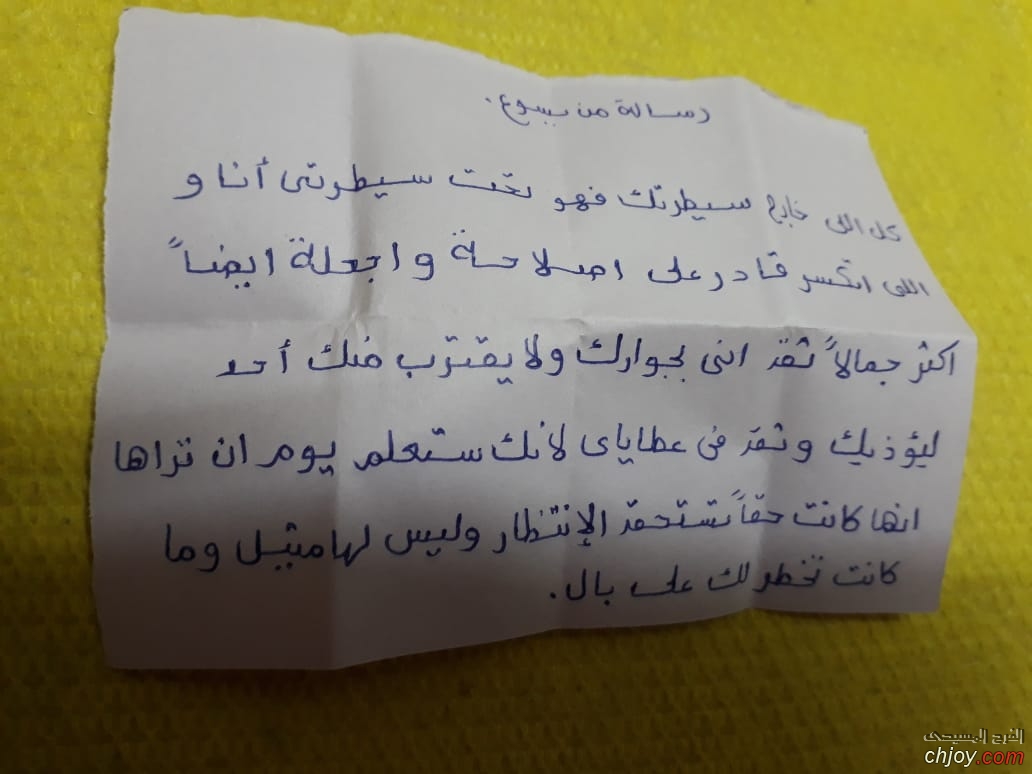 رسالة من يسوع.
كل اللى خارج سيطرتك فهو تحت سيطرتى أنا و
اللى اتكسر قادر على اصلاحة واجعلة ايضاً
اكثر جمالاً ثقد انى بجوارك ولا يقترب منك أحد
ليؤذيك وثقد فى عطاياى لانك ستعلم يوم ان تراها
انها كانت حقاً تستحقد الإنتظار وليس لها مثيل وما
كانت تخطر لك على بال.
الفرح المسيحى
chjoy.com